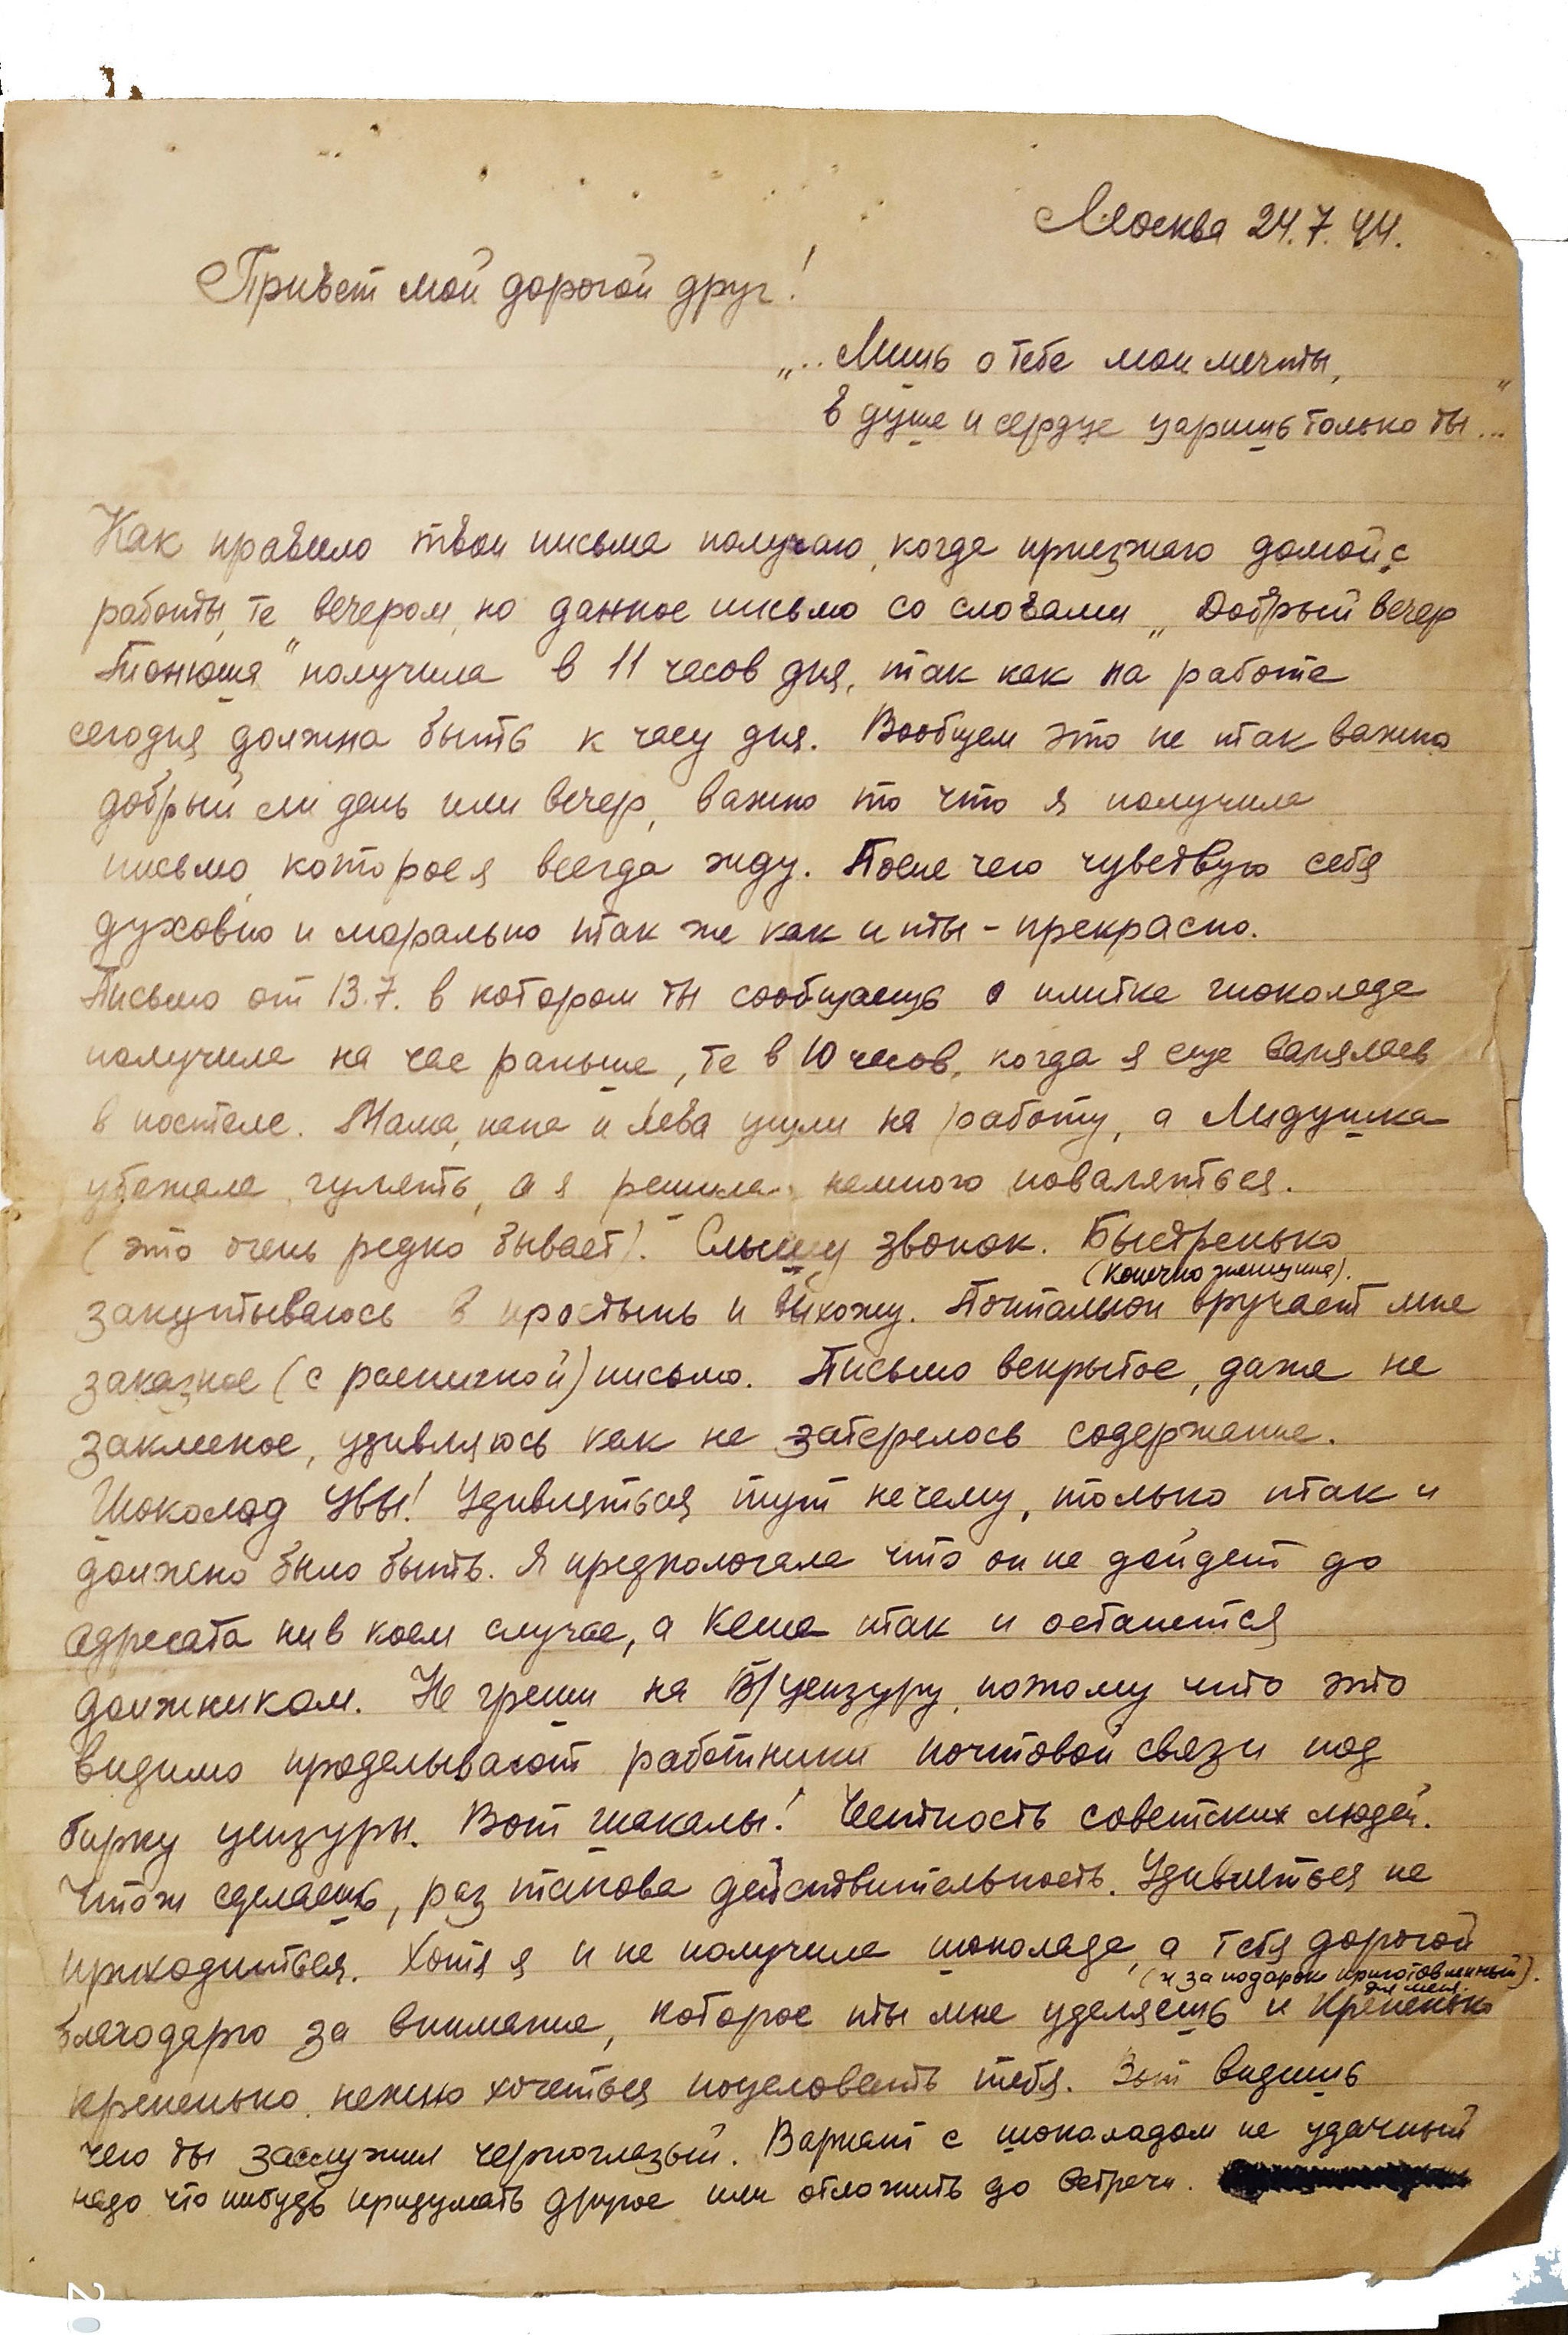 Москва 24.7.44.
Привет мой дорогой друг!
„.. Лишь о тебе мои мечты,
в душе и сердце царишь только ты..."
Как правило твои письма получаю, когда приезжаю домой с
работы, те вечером, но данное письмо со словами „Добрый вечер
Тонюша" получила в 11 часов дня, так как на работе
сегодня должна быть к часу дня. Вообщем это не так важно
добрый ли день или вечер, важно то что я получила
письмо, которое я всегда жду. После чего чувствую себя
духовно и морально так же как и ты - прекрасно.
Письмо от 13.7. в котором ты сообщаешь о плитке шоколада
получила на час раньше, те в 10 часов, когда я еще валялась
в постеле. Мама, папа и Лева ушли на работу, а Лидушка
убежала гулять, а я решила немного поваляться.
(это очень редко бывает). Слышу звонок. Быстренько
(конечно женщина).
закутываюсь в простынь и выхожу. Почтальон вручает мне
заказное (с распиской) письмо. Письмо вскрытое, даже не
заклееное, удивляюсь как не затерялось содержание.
Шоколад увы! Удивляться тут нечему, только так и
должено было быть. Я предпологала что он не дойдет до
адресата ни в коем случае, а Кеша так и останется
должником. Не греши на В/цензуру, потому что это
видимо проделывают работники почтовой связи под
бирку цензуры. Вот шакалы! Честность советских людей.
Чтож сделаешь, раз такова действительность. Удивляться не
приходиться. Хотя я и не получила шоколада, а тебя дорогой
(и за подарок приготовленный).
для меня.
благодарю за внимание, которое ты мне уделяешь и крепенько
крепенько, нежно хочеться поцеловать тебя. Вот видишь
чего ты заслужил черноглазый. Вариант с шоколадом не удачный
надо что нибудь придумать другое или отложить до встречи.